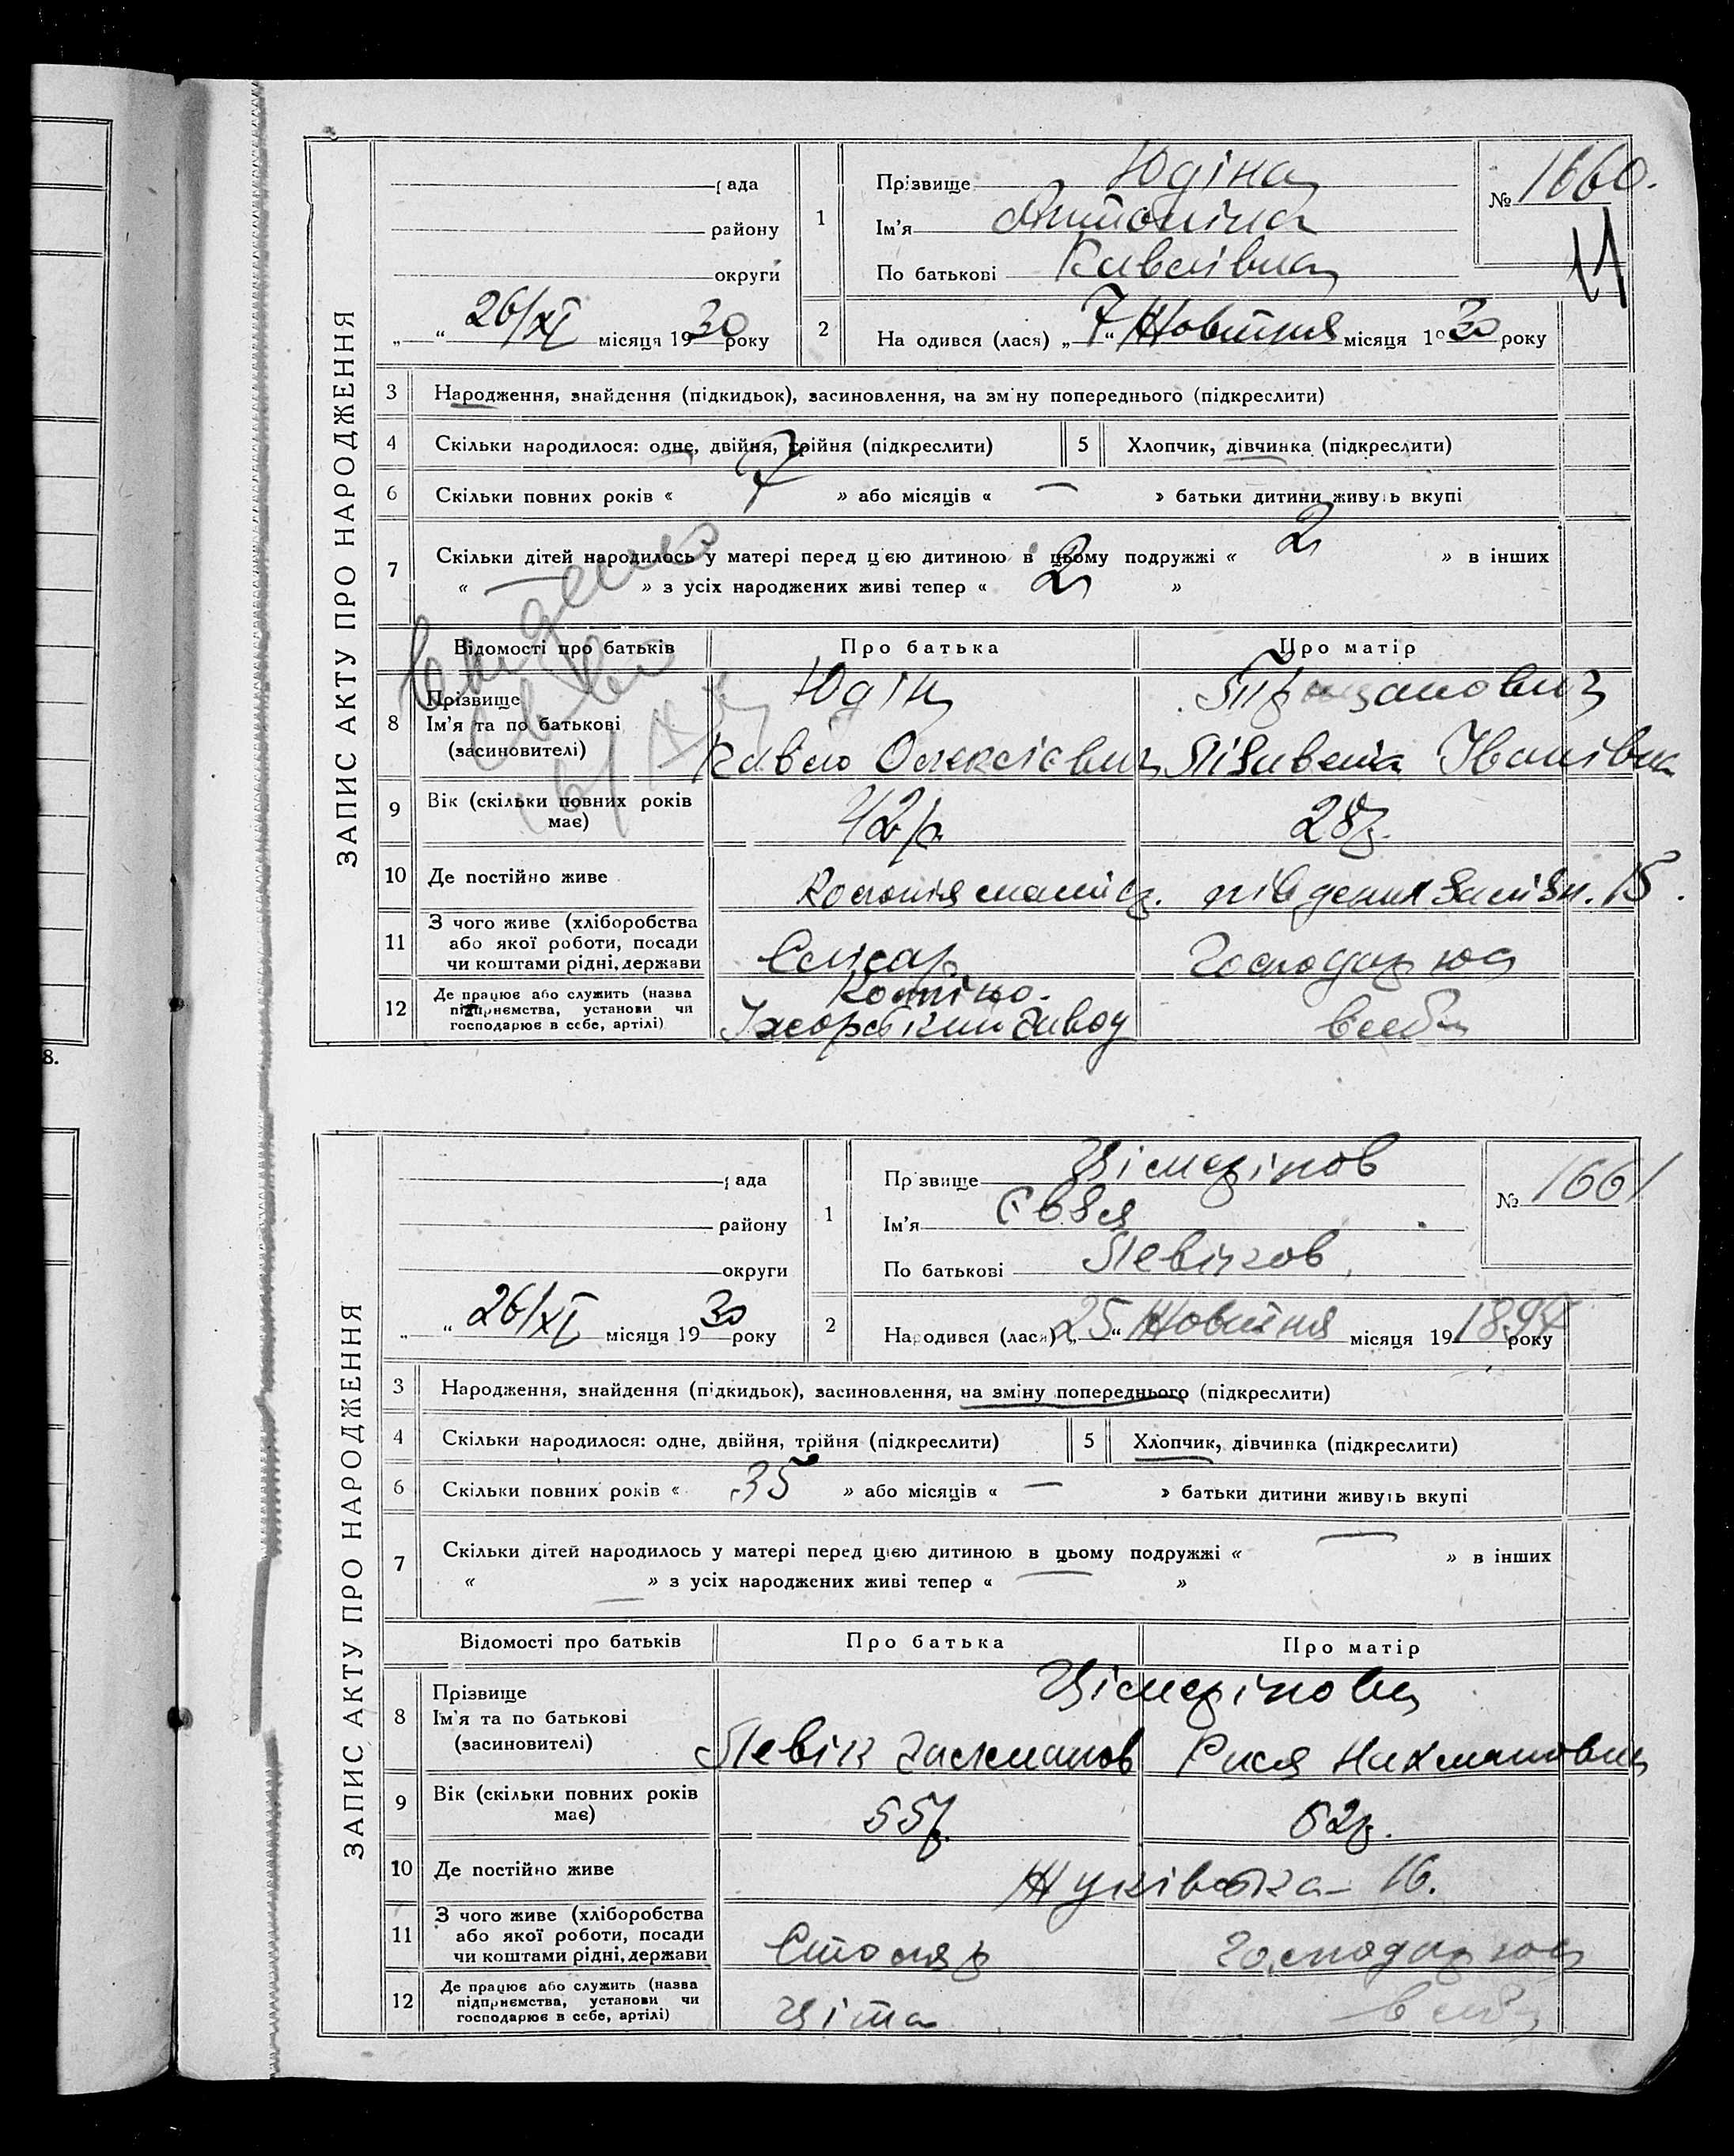 8.
ЗАПИС АКТУ ПРО НАРОДЖЕННЯ
рада
району
округи
„ “ 26/XI місяця 1930 року
1
Прізвище Юдіна
Ім'я Антоніна
По батькові Кавелівна
№ 1660.
2 Народився (лася) „7“ Жовтня місяця 1930 року
3 Народження, знайдення (підкидьок), засиновлення, на зміну попереднього (підкреслити)
4 Скільки народилося: одне, двійня, трійня (підкреслити)
5 Хлопчик, дівчинка (підкреслити)
6 Скільки повних років « 7 » або місяців « — » батьки дитини живуть вкупі
7 Скільки дітей народилось у матері перед цією дитиною в цьому подружжі « 2 » в інших
« — » з усіх народжених живі тепер « 2 »
Відомості про батьків Про батька Про матір
8 Прізвище
Ім'я та по батькові
(засиновителі)
Юдін
Олексієвич
Лізавета Іванівна
9 Вік (скільки повних років має) 42р. 28р.
10 Де постійно живе 15.
11 З чого живе (хліборобства або якої роботи, посади чи коштами рідні, держави Слісар Господарює
12 Де працює або служить (назва підприємства, установи чи господарює в себе, артілі) завод в себе
ЗАПИС АКТУ ПРО НАРОДЖЕННЯ
рада
району
округи
„ “ 26/XI місяця 1930 року
1
Прізвище Цімерінов
Ім'я Євзя
По батькові Левіков
№ 1661
2 Народився (лася) „25“ Жовтня місяця 191894 року
3 Народження, знайдення (підкидьок), засиновлення, на зміну попереднього (підкреслити)
4 Скільки народилося: одне, двійня, трійня (підкреслити)
5 Хлопчик, дівчинка (підкреслити)
6 Скільки повних років « 35 » або місяців « — » батьки дитини живуть вкупі
7 Скільки дітей народилось у матері перед цією дитиною в цьому подружжі « — » в інших
« — » з усіх народжених живі тепер « — »
Відомості про батьків Про батька Про матір
8 Прізвище
Ім'я та по батькові
(засиновителі)
Цімерінови
Левік Залманов Рися Нахмановна
9 Вік (скільки повних років має) 55р. 52р.
10 Де постійно живе Жуківська – 16.
11 З чого живе (хліборобства або якої роботи, посади чи коштами рідні, держави Столяр Господарює
12 Де працює або служить (назва підприємства, установи чи господарює в себе, артілі) в себе